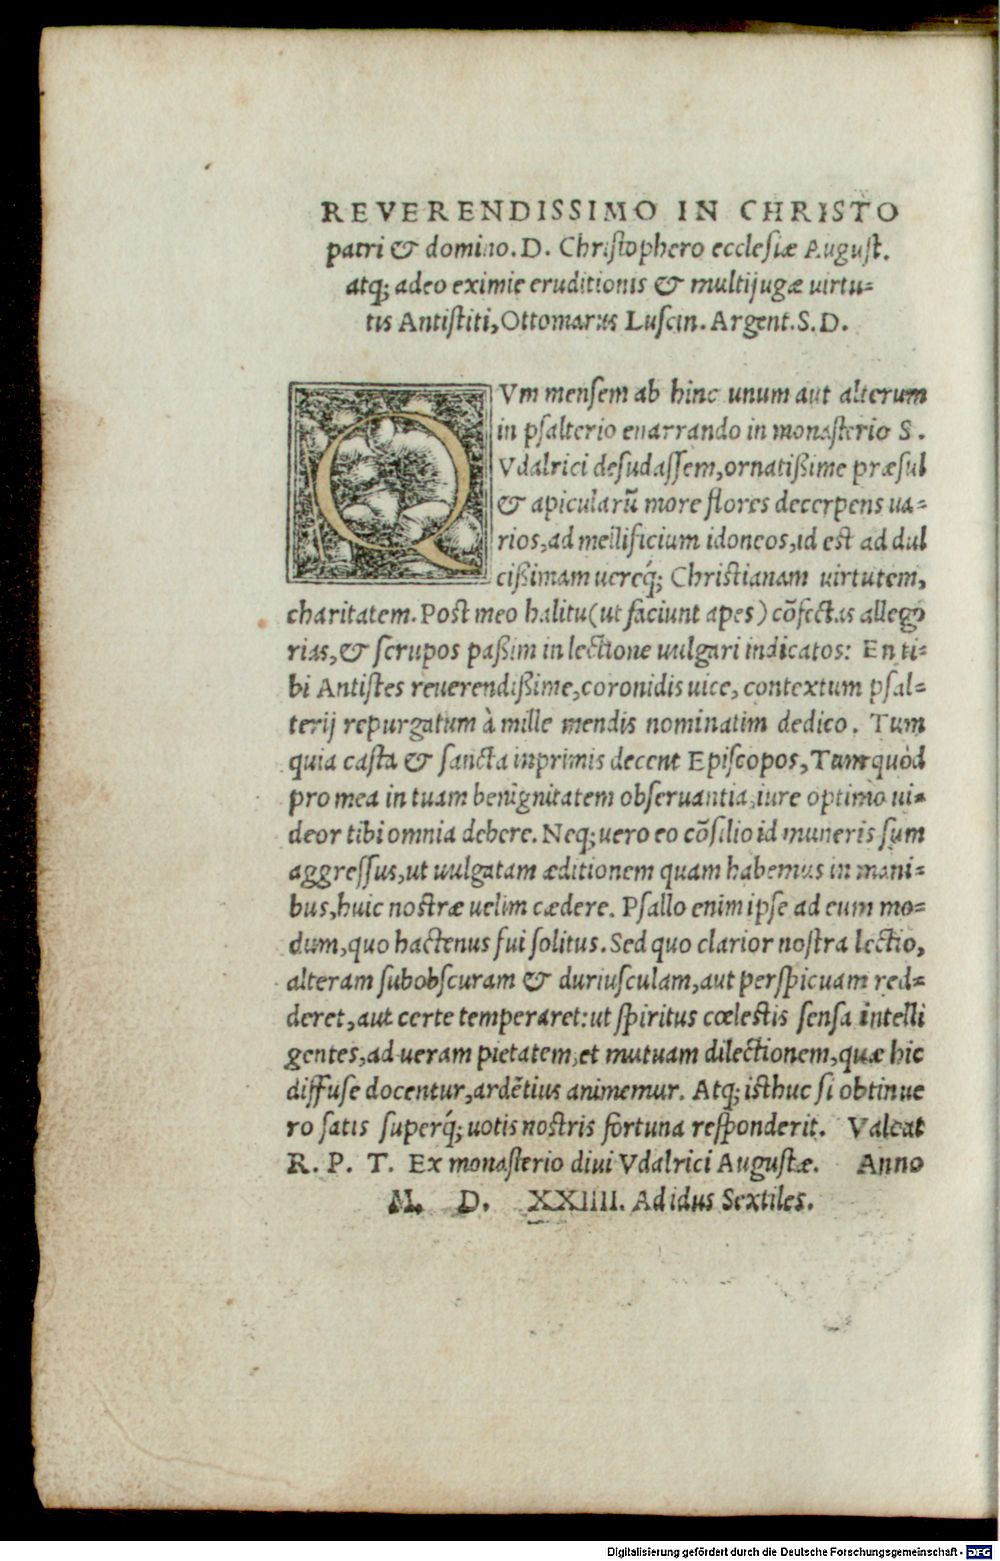 REVERENDISSIMO IN CHRISTO
patri & domino. D. Christophero ecclesiæ August.
atq; adeo eximie eruditionis & multijugæ uirtu-
tis Antistiti, Ottomarus Luscin. Argent. S. D.
QVm mensem ab hinc unum aut alterum
in psalterio enarrando in monasterio S.
Vdalrici desudassem, ornatißime præsul
& apicularũ more flores decerpens ua-
rios, ad mellificium idoneos, id est ad dul
cißimam uereq́; Christianam uirtutem,
charitatem. Post meo halitu (ut faciunt apes) cõfectas allego
rias, & scrupos paßim in lectione uulgari indicatos: En ti-
bi Antistes reuerendißime, coronidis uice, contextum psal-
terij repurgatum à mille mendis nominatim dedico. Tum
quia casta & sancta inprimis decent Episcopos, Tum quòd
pro mea in tuam benignitatem obseruantia, iure optimo ui-
deor tibi omnia debere. Neq; uero eo cõsilio id muneris sum
aggressus, ut uulgatam æditionem quam habemus in mani-
bus, huic nostræ uelim cædere. Psallo enim ipse ad eum mo-
dum, quo hactenus fui solitus. Sed quo clarior nostra lectio,
alteram subobscuram & duriusculam, aut perspicuam red-
deret, aut certe temperaret: ut spiritus cœlestis sensa intelli
gentes, ad ueram pietatem, et mutuam dilectionem, quæ hic
diffuse docentur, ardẽtius animemur. Atq; isthuc si obtinue
ro satis superq́; uotis nostris fortuna responderit. Valeat
R. P. T. Ex monasterio diui Vdalrici Augustæ. Anno
M. D. XXIIII. Ad idus Sextiles.
Digitalisierung gefördert durch die Deutsche Forschungsgemeinschaft - DFG